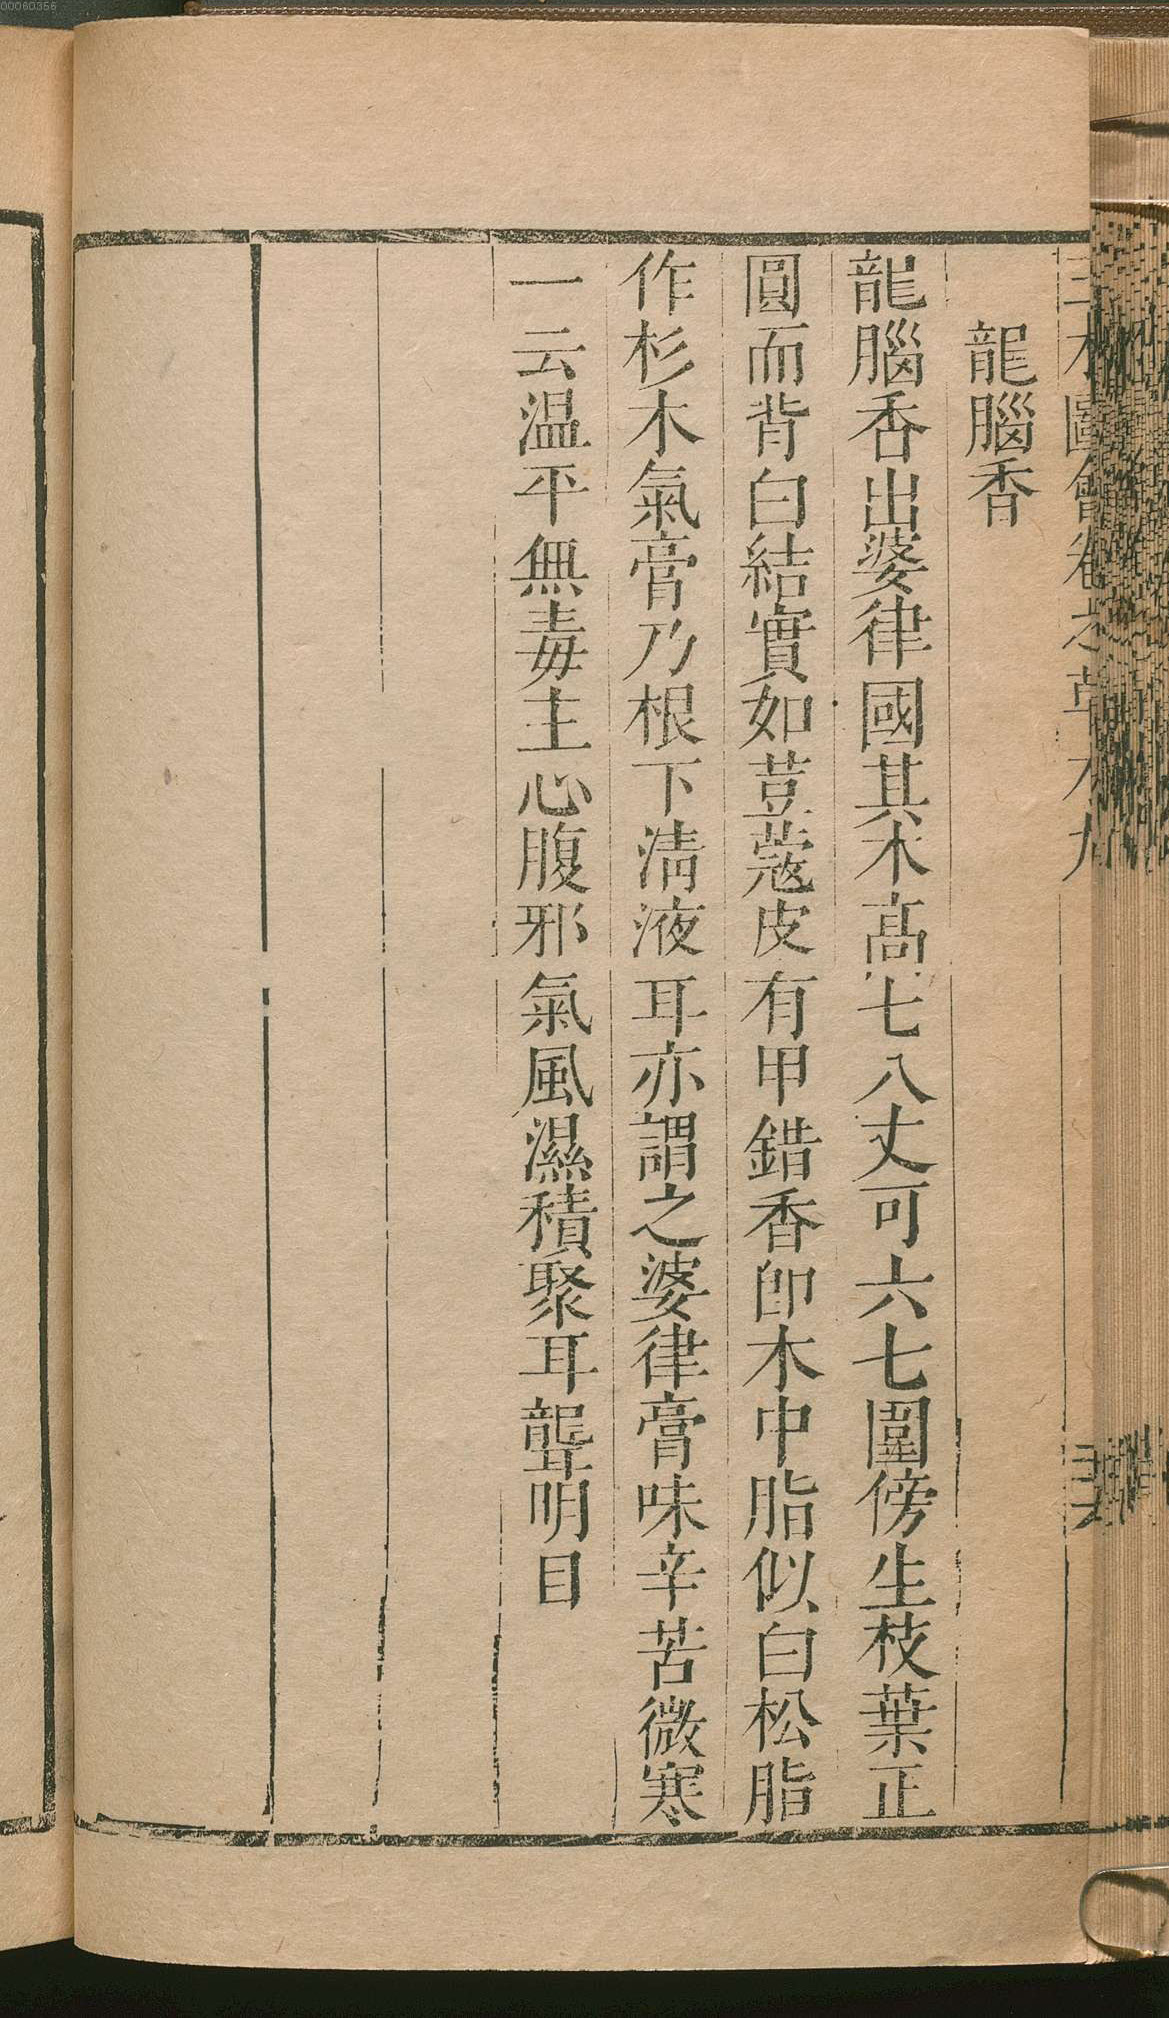 00060356
龍腦香
龍腦香出婆律國其木髙七八丈可六七圍傍生枝葉正
圓而背白結實如荳蔻皮有甲錯香卽木中脂似白松脂
作杉木氣膏乃根下清液耳亦謂之婆律膏味辛苦微寒
一云温平無毒主心腹邪氣風濕積聚耳聾明目